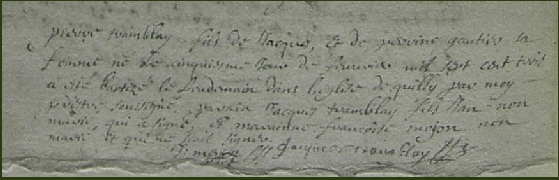 pierre tramblay fils de Jacque, et de perrine gautier sa
femme né le cinquiesme Jour de Janvier mil sept cent trois
a esté baptizé le lendemain dans leglise de par moy
prêtre soussigné, parain Jacque tramblay fils non
marié, qui a signé, et marianne francoise non
mariée et qui ne scait signer
Jacque tramblay